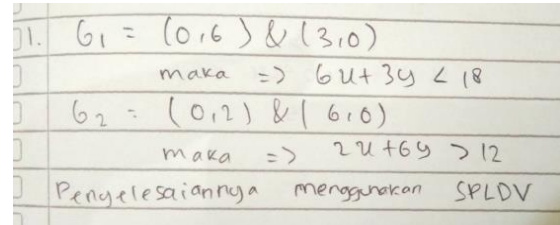 1. G₁ = (0,6) & (3,0)
maka => 6x + 3y < 18
G₂ = (0,2) & (6,0)
maka => 2x + 6y > 12
Penyelesaiannya menggunakan SPLDV